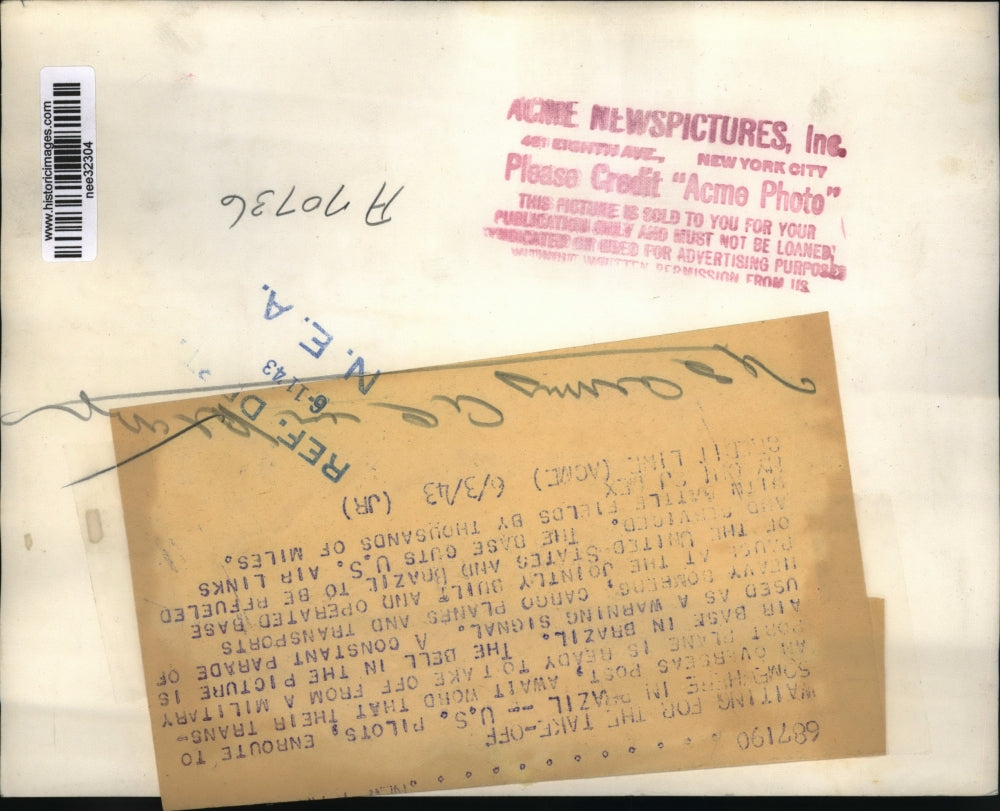 www.historicimages.com
nee32304
ACME NEWSPICTURES, Inc.
461 EIGHTH AVE., NEW YORK CITY
Please Credit "Acme Photo"
THIS PICTURE IS SOLD TO YOU FOR YOUR
PUBLICATION ONLY AND MUST NOT BE LOANED,
SYNDICATED OR USED FOR ADVERTISING PURPOSES
WITHOUT WRITTEN PERMISSION FROM US
A70736
N. E. A.
6-11-43
REF. D
687190
WAITING FOR THE TAKE-OFF
SOMEWHERE IN BRAZIL -- U.S. PILOTS, ENROUTE TO
AN OVERSEAS POST, AWAIT WORD THAT THEIR TRANS-
PORT PLANE IS READY TO TAKE OFF FROM A MILITARY
AIR BASE IN BRAZIL. THE BELL IN THE PICTURE IS
USED AS A WARNING SIGNAL. A CONSTANT PARADE OF
HEAVY BOMBERS, CARGO PLANES AND TRANSPORTS
PAUSE AT THE JOINTLY BUILT AND OPERATED BASE
OF THE UNITED STATES AND BRAZIL TO BE REFUELED
AND SERVICED. THE BASE CUTS U.S. AIR LINKS
WITH BATTLE FIELDS BY THOUSANDS OF MILES.
CREDIT LINE (ACME) 6/3/43 (JR)